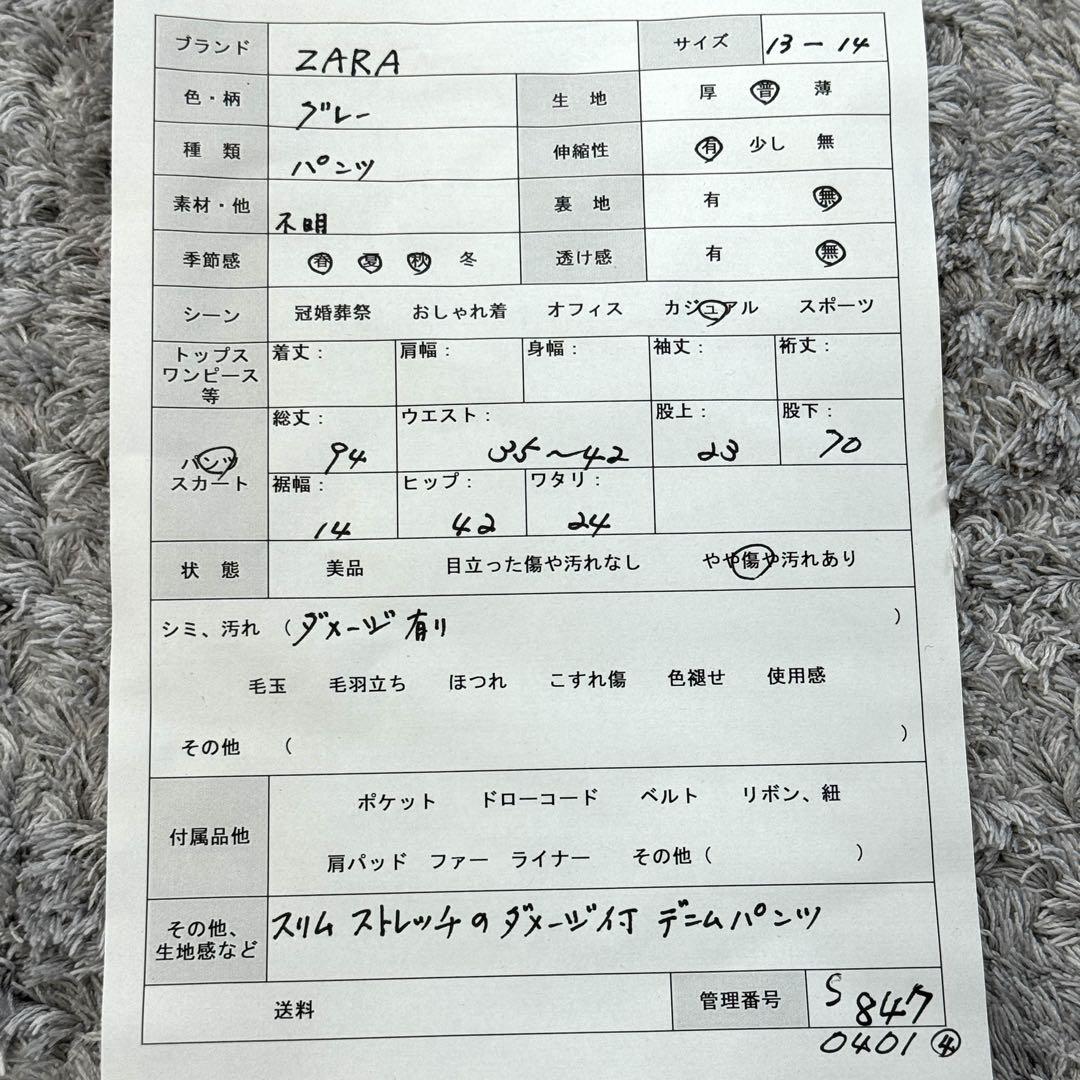 ブランド ZARA サイズ 13-14
色・柄 グレー 生地 厚 普 薄
種類 パンツ 伸縮性 有 少し 無
素材・他 不明 裏地 有 無
季節感 春 夏 秋 冬 透け感 有 無
シーン 冠婚葬祭 おしゃれ着 オフィス カジュアル スポーツ
トップス
ワンピース
等
着丈: 肩幅: 身幅: 袖丈: 裄丈:
パンツ
スカート
総丈: ウエスト: 股上: 股下:
94 35~42 23 70
裾幅: ヒップ: ワタリ:
14 42 24
状態 美品 目立った傷や汚れなし やや傷や汚れあり
シミ、汚れ (ダメージ有り )
毛玉 毛羽立ち ほつれ こすれ傷 色褪せ 使用感
その他 ( )
付属品他
ポケット ドローコード ベルト リボン、紐
肩パッド ファー ライナー その他( )
その他、
生地感など
スリム ストレッチの ダメージ付 デニムパンツ
送料 管理番号 S 847
0401 ④